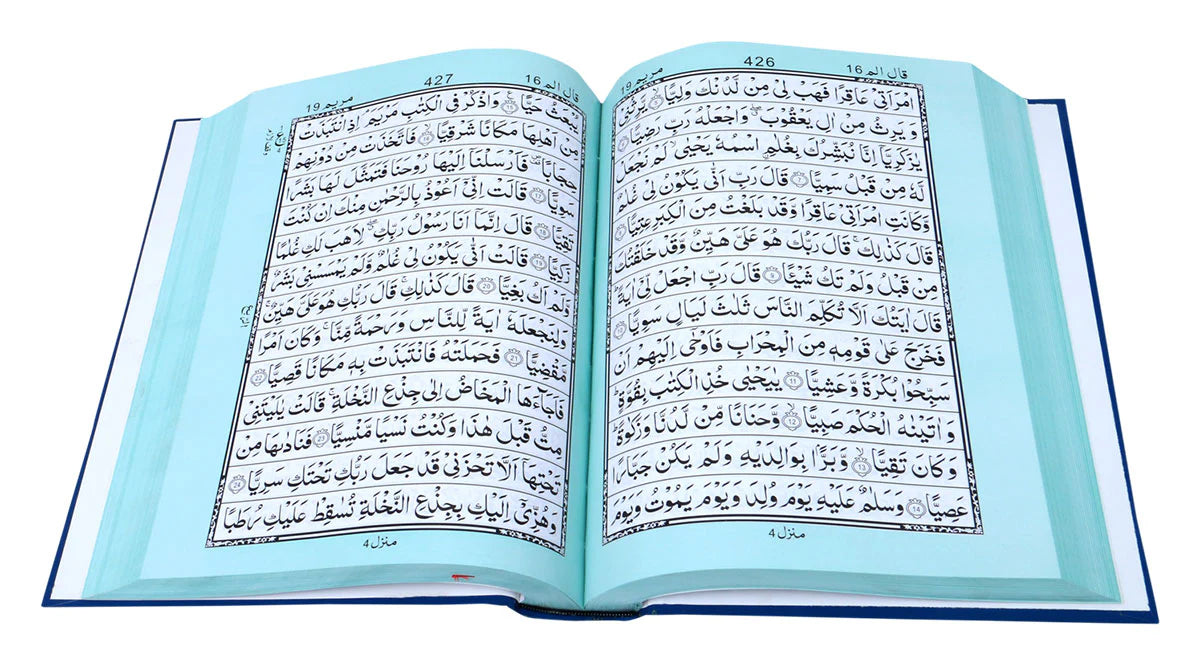 قال الم 16 426 مريم 19
امْرَاَتِیْ عَاقِرًا فَهَبْ لِیْ مِنْ لَّدُنْكَ وَلِیًّا ۙ یَّرِثُنِیْ
وَ یَرِثُ مِنْ اٰلِ یَعْقُوْبَ ۖ وَاجْعَلْهُ رَبِّ رَضِیًّا
یٰزَكَرِیَّاۤ اِنَّا نُبَشِّرُكَ بِغُلٰمِ ِ۟اسْمُهٗ یَحْیٰی ۙ لَمْ نَجْعَلْ
لَّهٗ مِنْ قَبْلُ سَمِیًّا 7 قَالَ رَبِّ اَنّٰی یَكُوْنُ لِیْ غُلٰمٌ
وَّكَانَتِ امْرَاَتِیْ عَاقِرًا وَّقَدْ بَلَغْتُ مِنَ الْكِبَرِ عِتِیًّا
قَالَ كَذٰلِكَ ۚ قَالَ رَبُّكَ هُوَ عَلَیَّ هَیِّنٌ وَّقَدْ خَلَقْتُكَ
مِنْ قَبْلُ وَلَمْ تَكُ شَیْـًٔا 9 قَالَ رَبِّ اجْعَلْ لِّیْۤ اٰیَةً ؕ
قَالَ اٰیَتُكَ اَلَّا تُكَلِّمَ النَّاسَ ثَلٰثَ لَیَالٍ سَوِیًّا
فَخَرَجَ عَلٰی قَوْمِهٖ مِنَ الْمِحْرَابِ فَاَوْحٰۤی اِلَیْهِمْ اَنْ
سَبِّحُوْا بُكْرَةً وَّعَشِیًّا 11 یٰیَحْیٰی خُذِ الْكِتٰبَ بِقُوَّةٍ ؕ
وَ اٰتَیْنٰهُ الْحُكْمَ صَبِیًّا 12 وَّحَنَانًا مِّنْ لَّدُنَّا وَزَكٰوةً ؕ
وَ كَانَ تَقِیًّا 13 وَّبَرًّا بِوَالِدَیْهِ وَلَمْ یَكُنْ جَبَّارًا
عَصِیًّا 14 وَسَلٰمٌ عَلَیْهِ یَوْمَ وُلِدَ وَیَوْمَ یَمُوْتُ وَیَوْمَ
منزل 4
قال الم 16 427 مريم 19
یُبْعَثُ حَیًّا 15 وَاذْكُرْ فِی الْكِتٰبِ مَرْیَمَ ۘ اِذِ انْتَبَذَتْ
مِنْ اَهْلِهَا مَكَانًا شَرْقِیًّا 16 فَاتَّخَذَتْ مِنْ دُوْنِهِمْ
حِجَابًا ۪۫ فَاَرْسَلْنَاۤ اِلَیْهَا رُوْحَنَا فَتَمَثَّلَ لَهَا بَشَرًا
سَوِیًّا 17 قَالَتْ اِنِّیْۤ اَعُوْذُ بِالرَّحْمٰنِ مِنْكَ اِنْ كُنْتَ
تَقِیًّا 18 قَالَ اِنَّمَاۤ اَنَا رَسُوْلُ رَبِّكِ ۖ لِاَهَبَ لَكِ غُلٰمًا
زَكِیًّا 19 قَالَتْ اَنّٰی یَكُوْنُ لِیْ غُلٰمٌ وَّلَمْ یَمْسَسْنِیْ بَشَرٌ
وَّلَمْ اَكُ بَغِیًّا 20 قَالَ كَذٰلِكِ ۚ قَالَ رَبُّكِ هُوَ عَلَیَّ هَیِّنٌ ۚ
وَلِنَجْعَلَهٗۤ اٰیَةً لِّلنَّاسِ وَرَحْمَةً مِّنَّا ۚ وَكَانَ اَمْرًا
مَّقْضِیًّا 21 فَحَمَلَتْهُ فَانْتَبَذَتْ بِهٖ مَكَانًا قَصِیًّا 22
فَاَجَآءَهَا الْمَخَاضُ اِلٰی جِذْعِ النَّخْلَةِ ۚ قَالَتْ یٰلَیْتَنِیْ
مِتُّ قَبْلَ هٰذَا وَكُنْتُ نَسْیًا مَّنْسِیًّا 23 فَنَادٰىهَا مِنْ
تَحْتِهَاۤ اَلَّا تَحْزَنِیْ قَدْ جَعَلَ رَبُّكِ تَحْتَكِ سَرِیًّا 24
وَهُزِّیْۤ اِلَیْكِ بِجِذْعِ النَّخْلَةِ تُسٰقِطْ عَلَیْكِ رُطَبًا
منزل 4